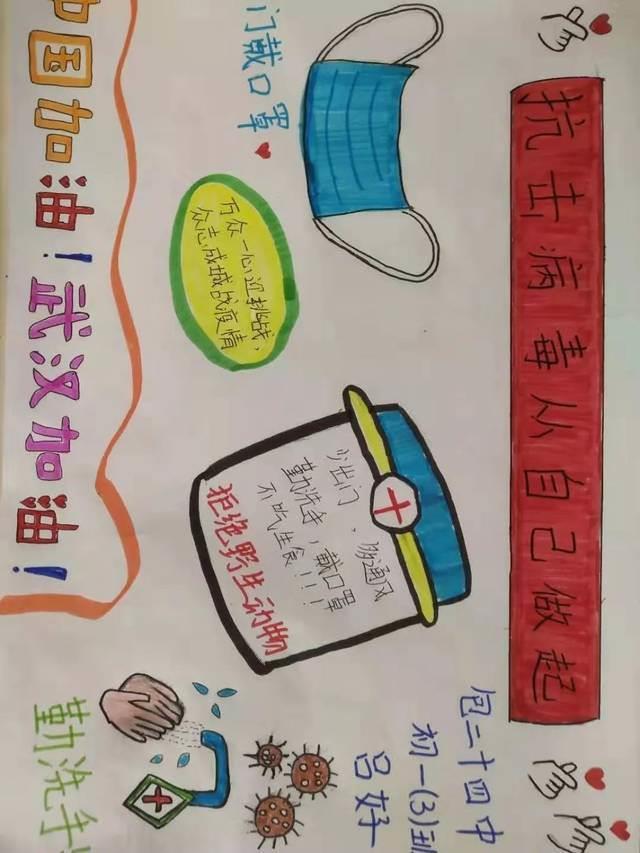 抗击病毒从自己做起
包二十四中
初一(3)班
吕好
门戴口罩
万众一心迎挑战，
众志成城战疫情
少出门，多通风
勤洗手，戴口罩
不吃生食！！！
拒绝野生动物
勤洗手
中国加油！武汉加油！